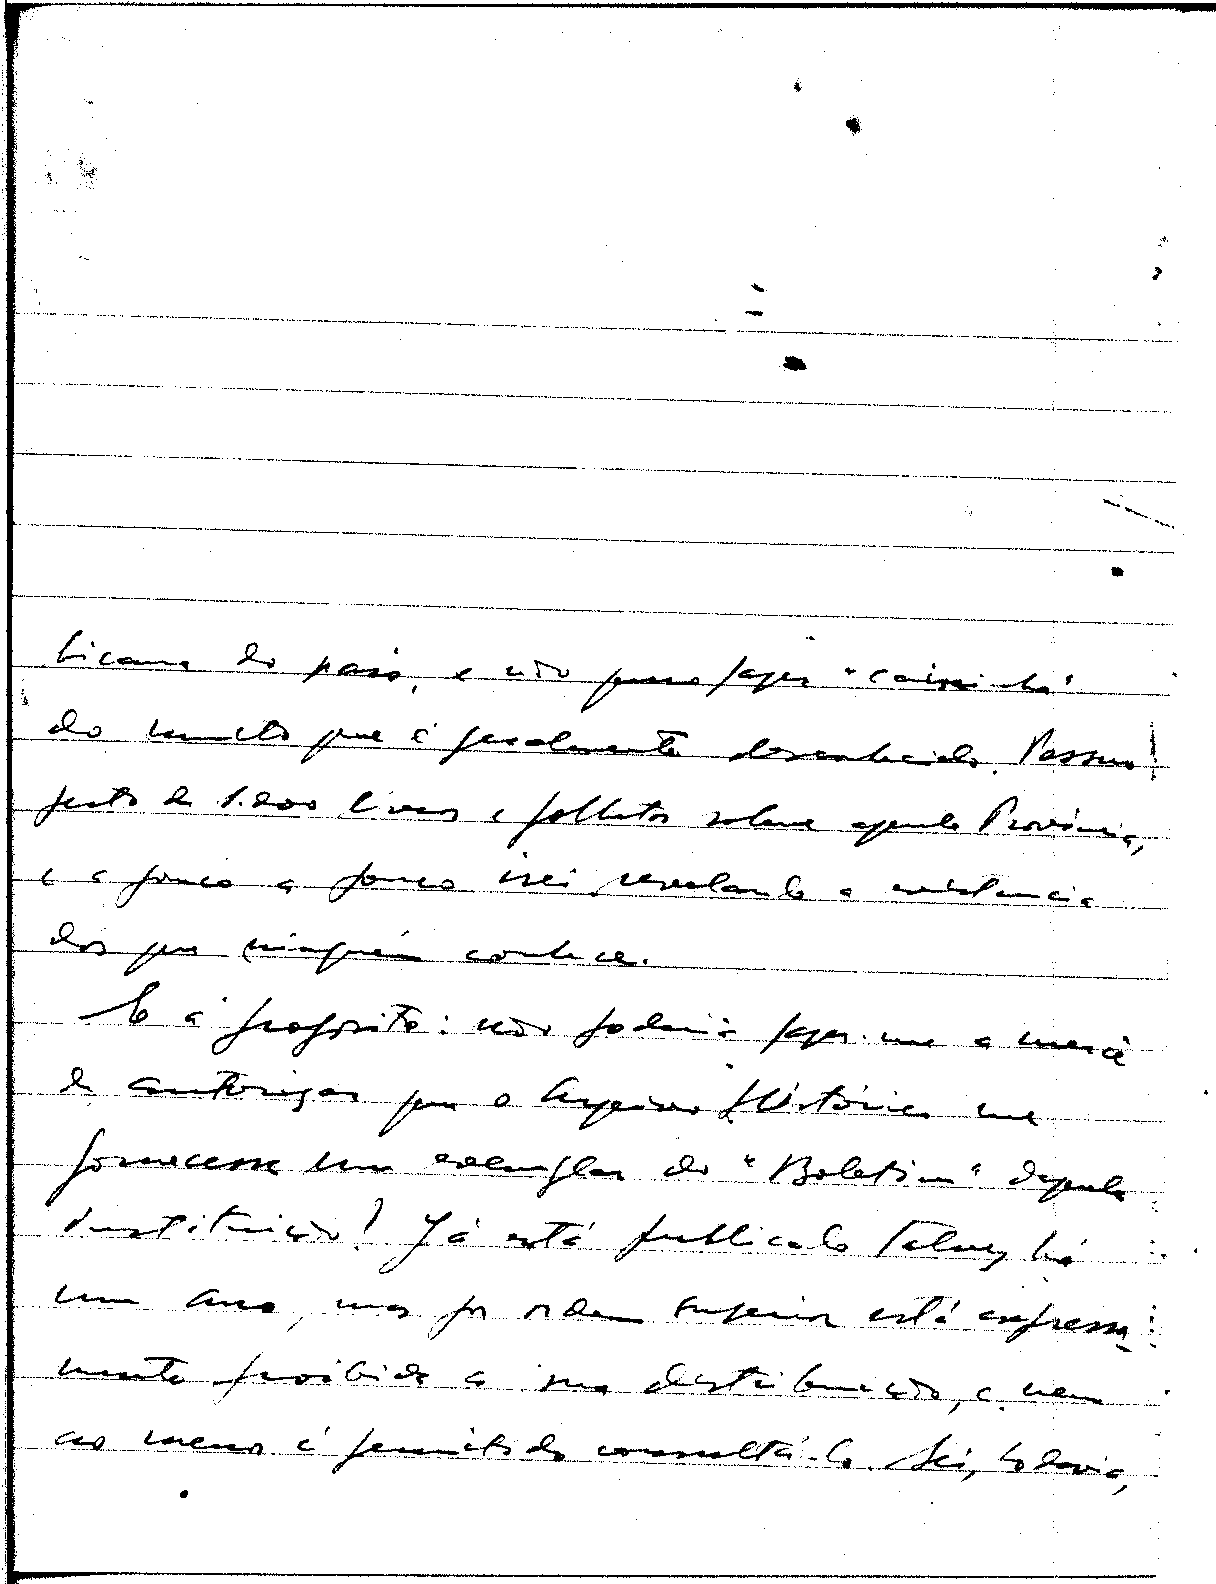 bicana do país, e não posso fazer "caixinha"
do muito que é geralmente desconhecido. Possuo
perto de 1.200 livros e folhetos sobre aquela Província,
e a pouco a pouco irei revelando a existência
dos que ninguém conhece.
E a propósito: não poderia fazer-me a mercê
de autorizar que o Arquivo Histórico me
fornecesse um exemplar do "Boletim" daquela
Instituição? Já está publicado talvez há
um ano, mas por ordem superior está expressa-
mente proibida a sua distribuição, e nem
ao menos é permitido consultá-lo. Sei, todavia,